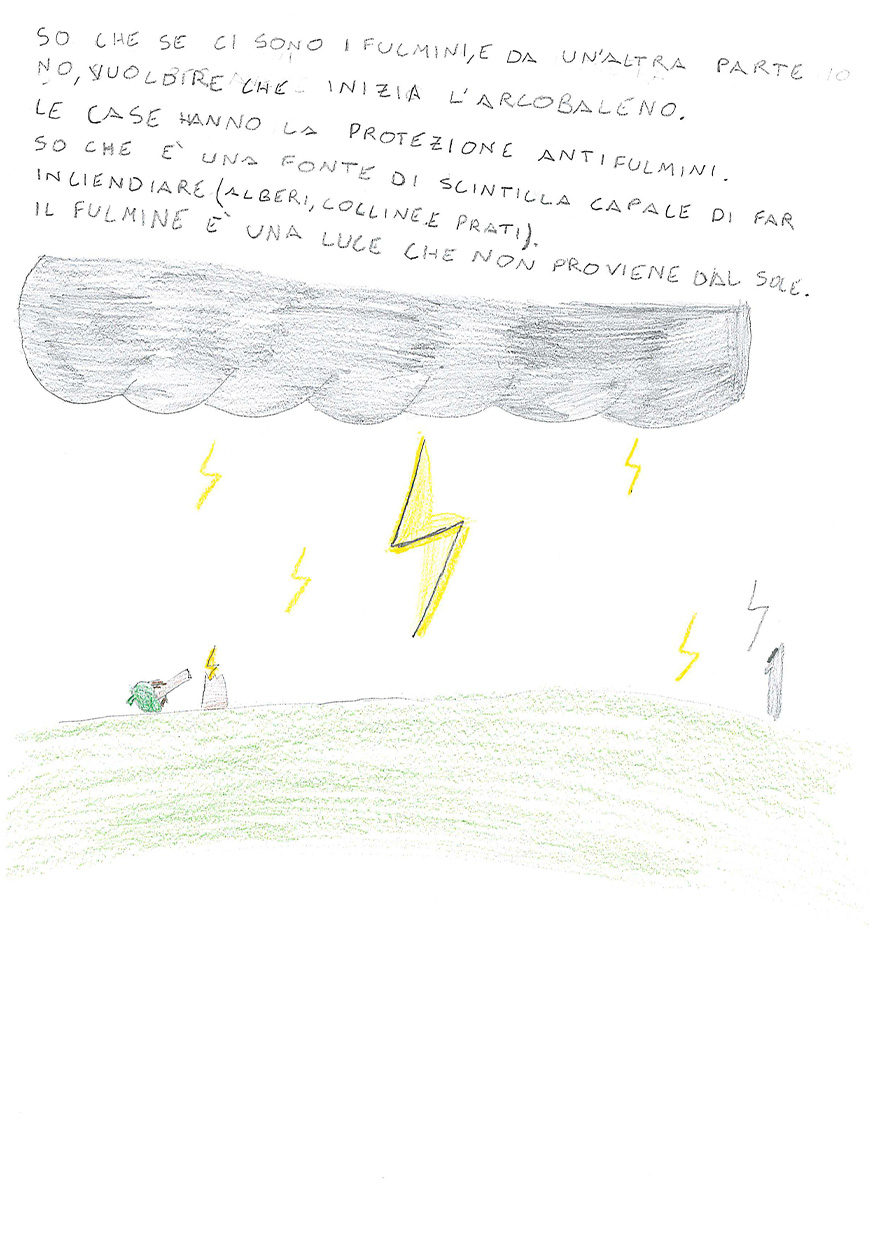 SO CHE SE CI SONO I FULMINI, E DA UN'ALTRA PARTE IO
NO, VUOL DIRE CHE INIZIA L'ARCOBALENO.
LE CASE HANNO LA PROTEZIONE ANTIFULMINI.
SO CHE E` UNA FONTE DI SCINTILLA CAPALE DI FAR
INCIENDIARE (ALBERI, COLLINE, E PRATI).
IL FULMINE E` UNA LUCE CHE NON PROVIENE DAL SOLE.